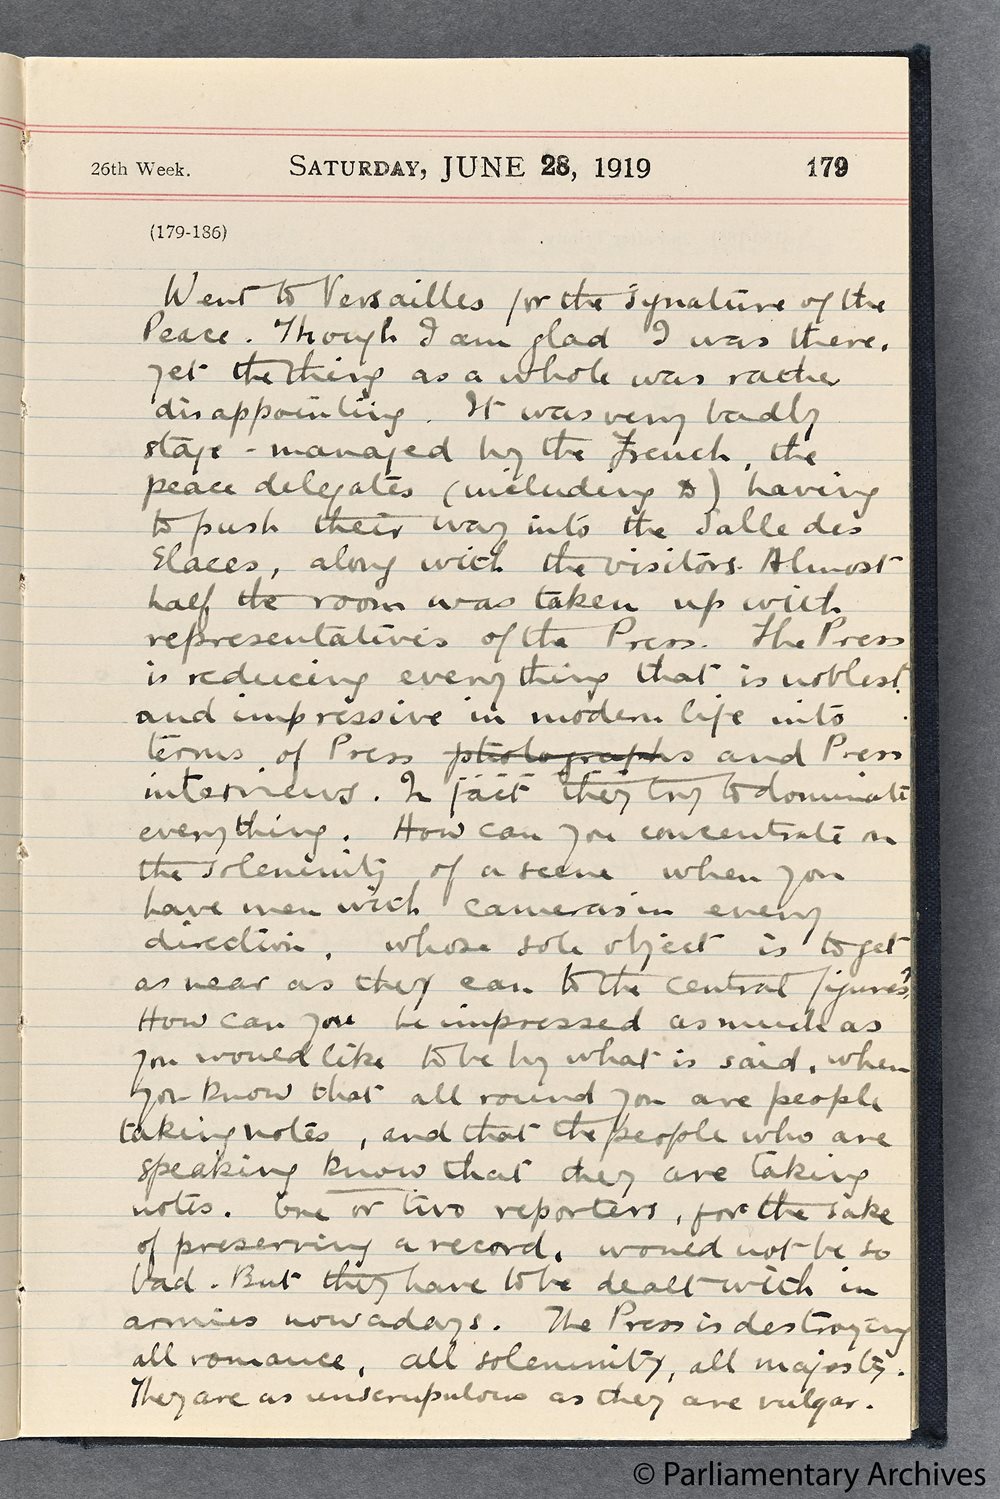 26th Week. SATURDAY, JUNE 28, 1919 179
(179-186)
Went to Versailles for the signature of the
Peace. Though I am glad I was there,
yet the thing as a whole was rather
disappointing. It was very badly
stage-managed by the French, the
peace delegates (including D) having
to push their way into the Salle des
Glaces, along with the visitors. Almost
half the room was taken up with
representatives of the Press. The Press
is reducing everything that is noblest
and impressive in modern life into
terms of Press photographs and Press
interviews. In fact they try to dominate
everything. How can you concentrate on
the solemnity of a scene when you
have men with cameras in every
direction, whose sole object is to get
as near as they can to the central figures?
How can you be impressed as much as
you would like to be by what is said, when
you know that all round you are people
taking notes, and that the people who are
speaking know that they are taking
notes. One or two reporters, for the sake
of preserving a record, would not be so
bad. But they have to be dealt with in
armies nowadays. The Press is destroying
all romance, all solemnity, all majesty.
They are as unscrupulous as they are vulgar.
© Parliamentary Archives